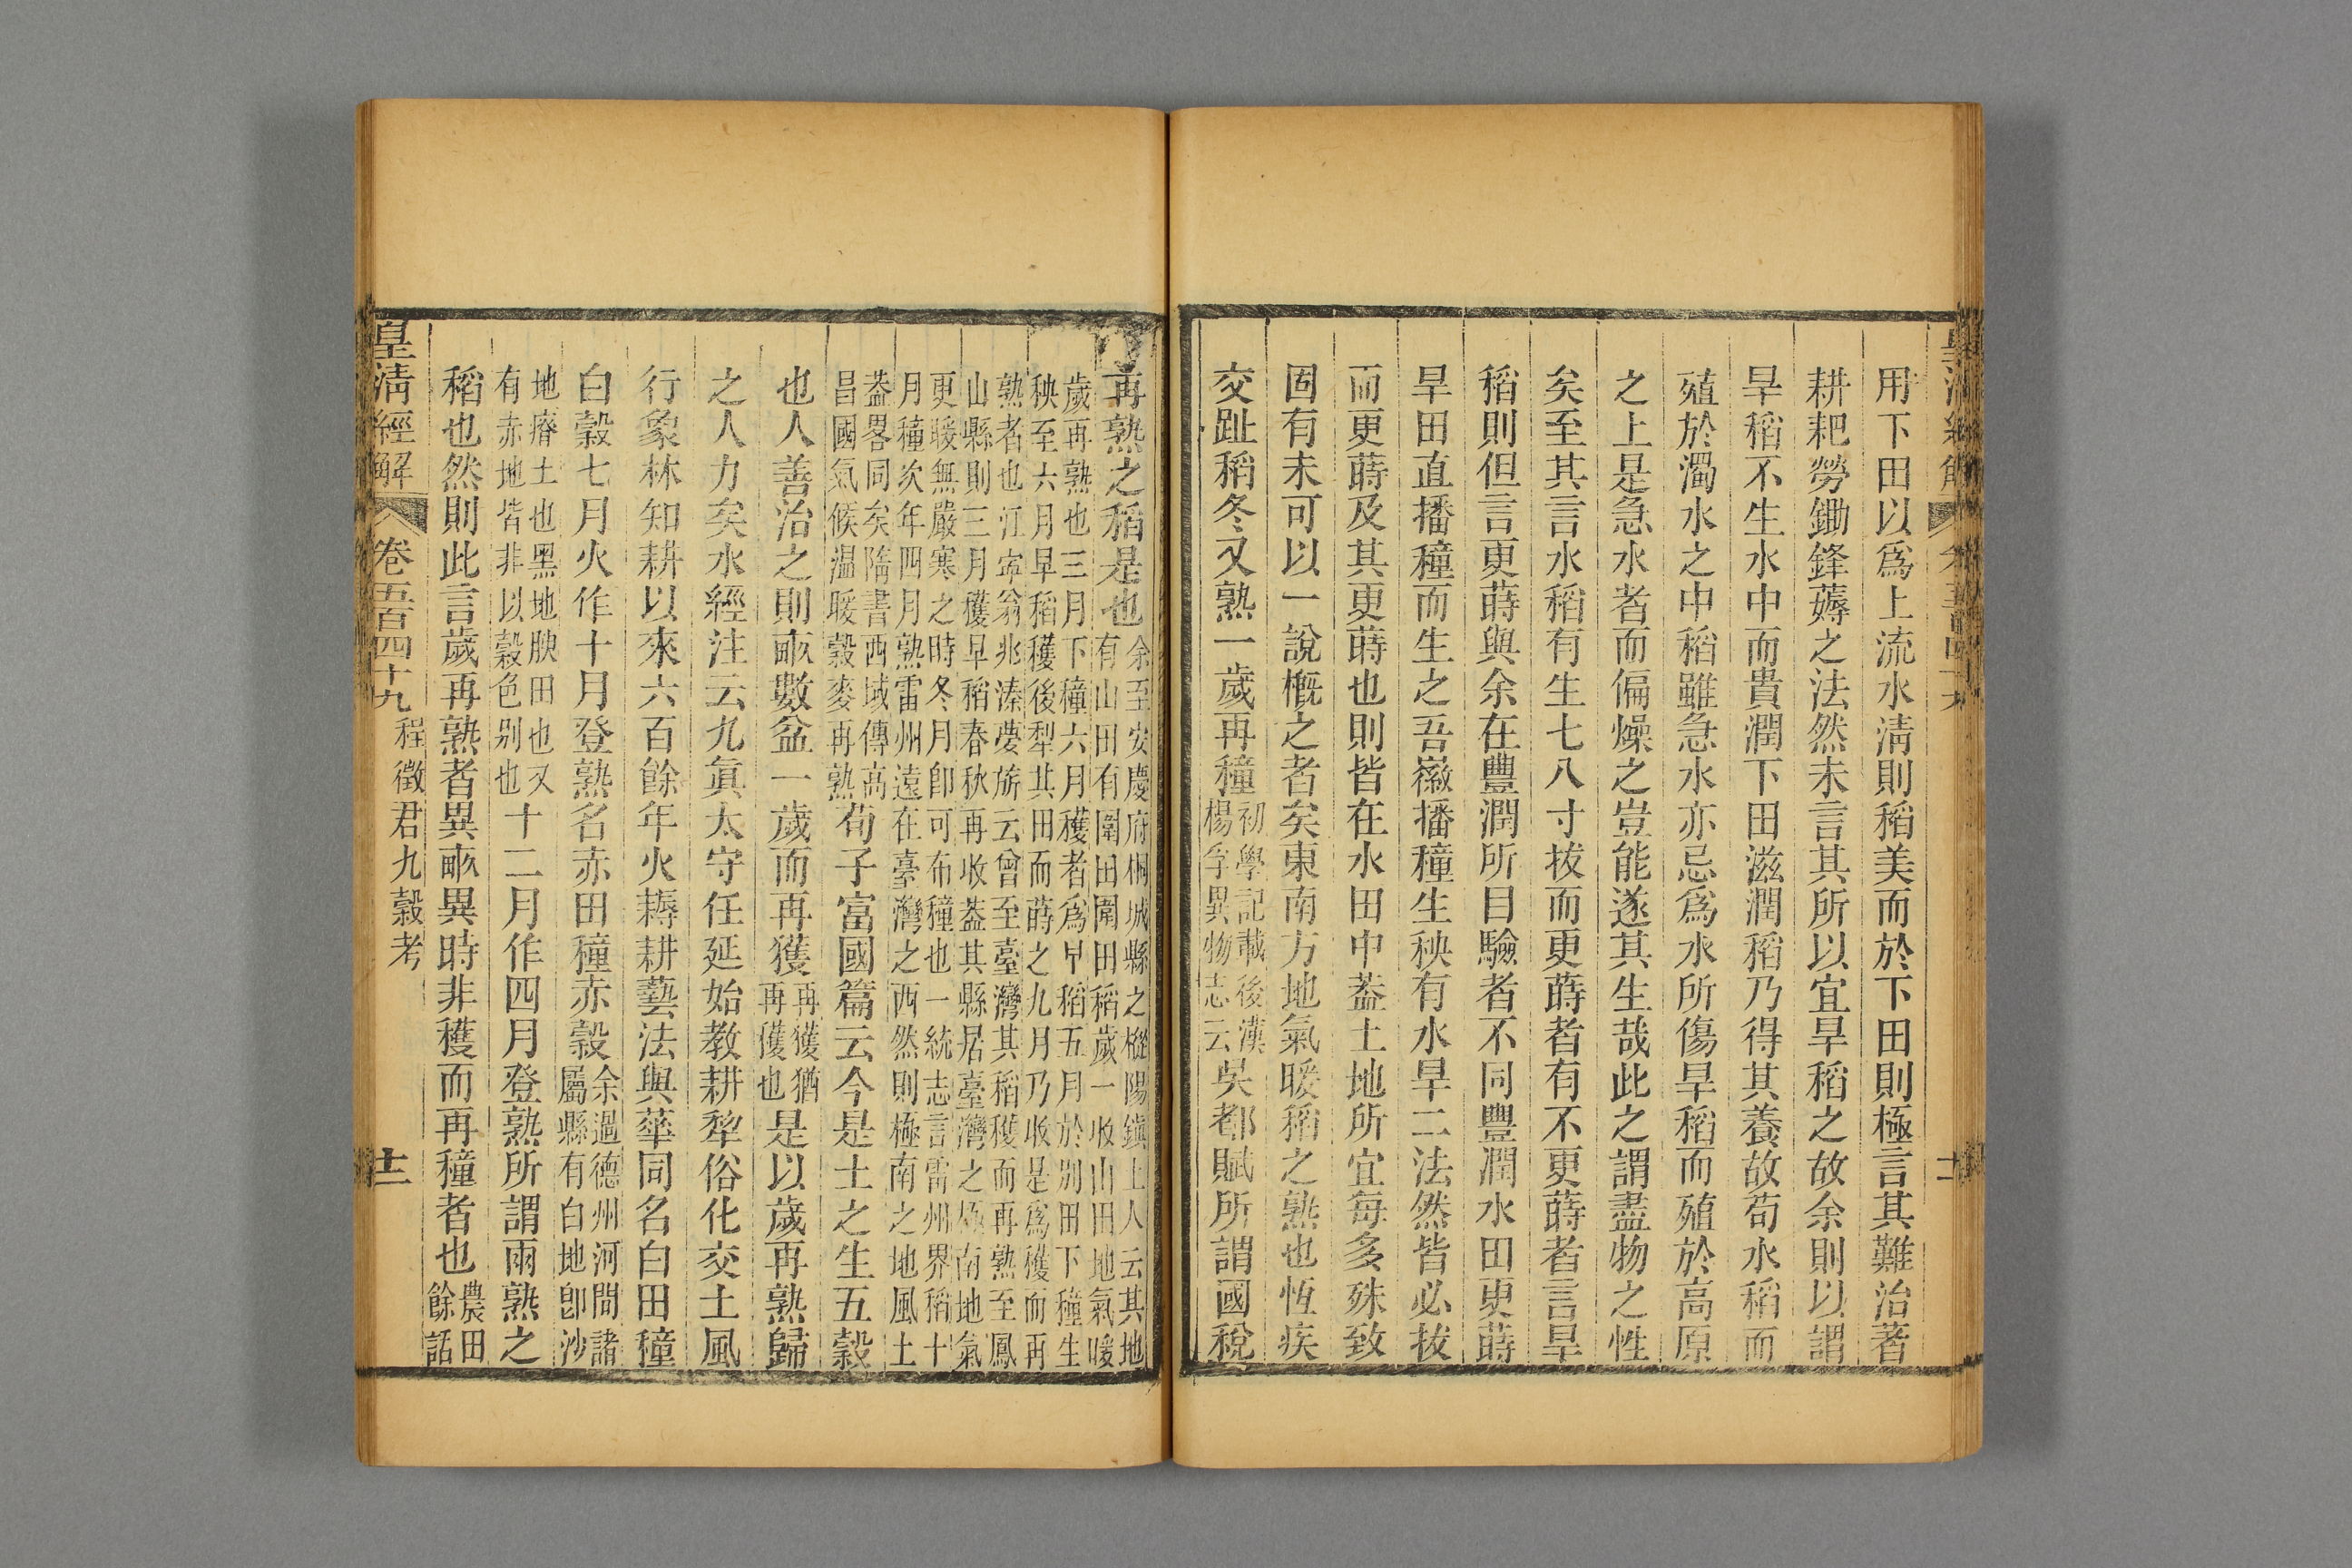 用下田以爲上流水淸則稻美而於下田則極言其難治著
耕耙勞鋤鋒薅之法然未言其所以宜旱稻之故余則以謂
旱稻不生水中而貴潤下田滋潤稻乃得其養故苟水稻而
殖於濁水之中稻雖急水亦忌爲水所傷旱稻而殖於高原
之上是急水者而偏燥之豈能遂其生哉此之謂盡物之性
矣至其言水稻有生七八寸拔而更蒔者有不更蒔者言旱
稻則但言更蒔與余在豐潤所目驗者不同豐潤水田更蒔
旱田直播穜而生之吾徽播穜生秧有水旱二法然皆必拔
而更蒔及其更蒔也則皆在水田中葢土地所宜每多殊致
固有未可以一說槪之者矣東南方地氣暖稻之熟也恆疾
交趾稻冬又熟一歲再穜初學記載後漢楊孚異物志云吳都賦所謂國稅
再熟之稻是也余至安慶府桐城縣之樅陽鎭上人云其地有山田有圍田圍田稻歲一收山田地氣暖
歲再熟也三月下穜六月穫者爲早稻五月於别田下穜生秧至六月早稻穫後犁其田而蒔之九月乃收是爲穫而再
熟者也江寧翁兆溱夢旂云曾至臺灣其稻穫而再熟至鳳山縣則三月穫早稻春秋再收葢其縣居臺灣之極南地氣
更暖無嚴寒之時冬月卽可布穜也一統志言雷州界稻十月穜次年四月熟雷州遠在臺灣之西然則極南之地風土
葢畧同矣隋書西域傳高昌國氣候温暖穀麥再熟荀子富國篇云今是土之生五穀
也人善治之則畝數盆一歲而再獲再獲猶再穫也是以歲再熟歸
之人力矣水經注云九眞太守任延始教耕犁俗化交土風
行象林知耕以來六百餘年火耨耕藝法與華同名白田穜
白穀七月火作十月登熟名赤田穜赤穀余過德州河間諸屬縣有白地卽沙
地瘠土也黑地腴田也又有赤地皆非以穀色别也十二月作四月登熟所謂兩熟之
稻也然則此言歲再熟者異畝異時非穫而再穜者也農田餘話
皇淸經解 卷五百四十九 程徵君九穀考 十二